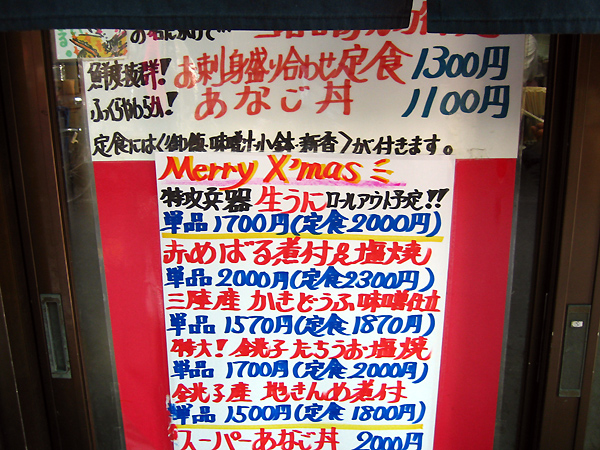 鮮度抜群!お刺身盛り合わせ定食 1300円
ふっくらやわらか!あなご丼 1100円
定食には〈御飯・味噌汁・小鉢・新香〉が付きます。
Merry X'mas
特攻兵器 生うに ロールアウト予定!!
単品1700円(定食2000円)
赤めばる煮付&塩焼
単品2000円(定食2300円)
三陸産 かきどうふ味噌仕立
単品1570円(定食1870円)
特大!銚子たちうお塩焼
単品1700円(定食2000円)
銚子産 地きんめ煮付
単品1500円(定食1800円)
スーパーあなご丼 2000円